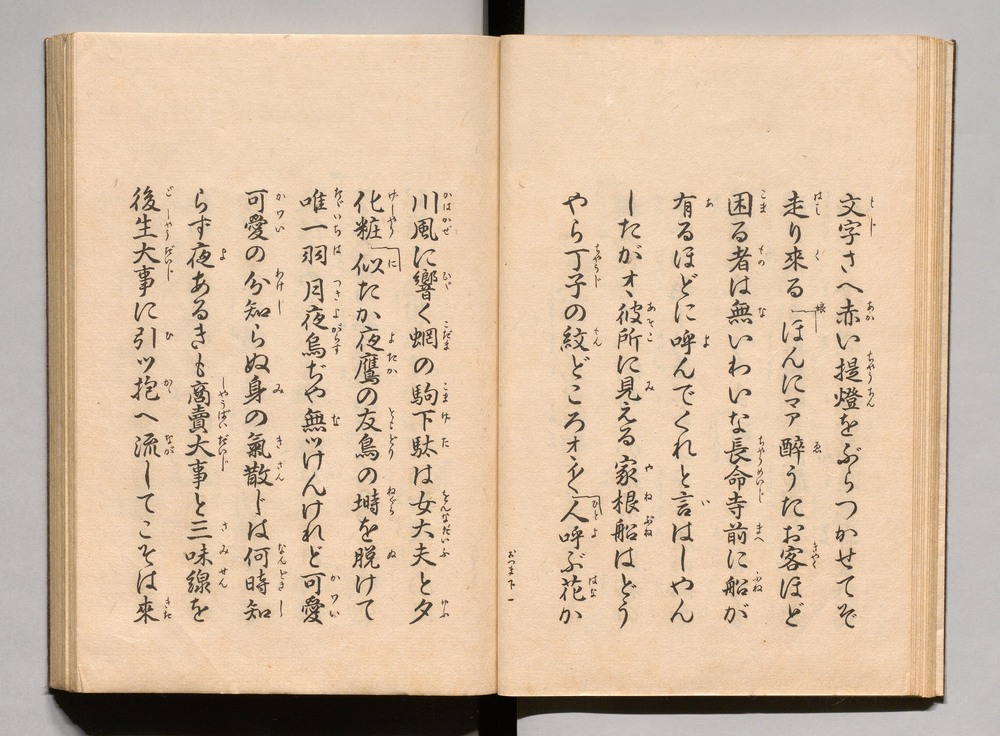 文字さへ赤い提燈をぶらつかせてぞ
走り來る「ほんにマア醉うたお客ほど
困る者は無いわいな長命寺前に船が
有るほどに呼んでくれと言はしやん
したがオヽ彼所に見える家根船はどう
やら丁子の紋どころオヽイ「人呼ぶ花か
おつま下 一
川風に響く蜩の駒下駄は女大夫と夕
化粧「似たか夜鷹の友鳥の塒を脱けて
唯一羽月夜烏ぢや無ッけんけれど可愛
可愛の分知らぬ身の氣散じは何時知
らず夜あるきも商賣大事と三味線を
後生大事に引ッ抱へ流してこそは來